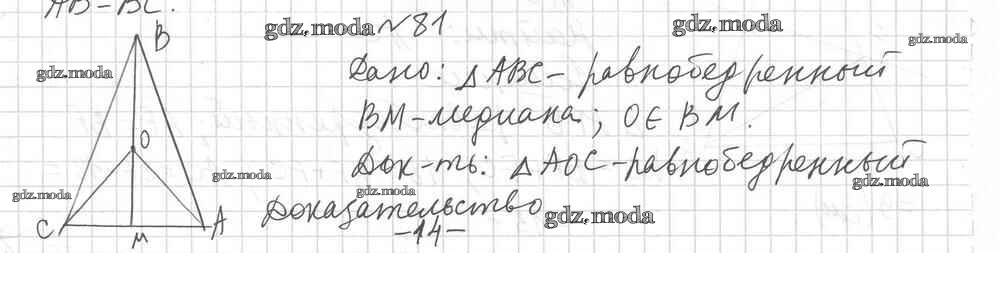 AB-BC.
gdz.moda №81
gdz.moda
gdz.moda
B
gdz.moda
Дано: △ABC- равнобедренный
BM-медиана; O∈BM.
O
Док-ть: △AOC-равнобедренный
gdz.moda
gdz.moda
gdz.moda
gdz.moda
Доказательство
gdz.moda
C
M
A
-14-